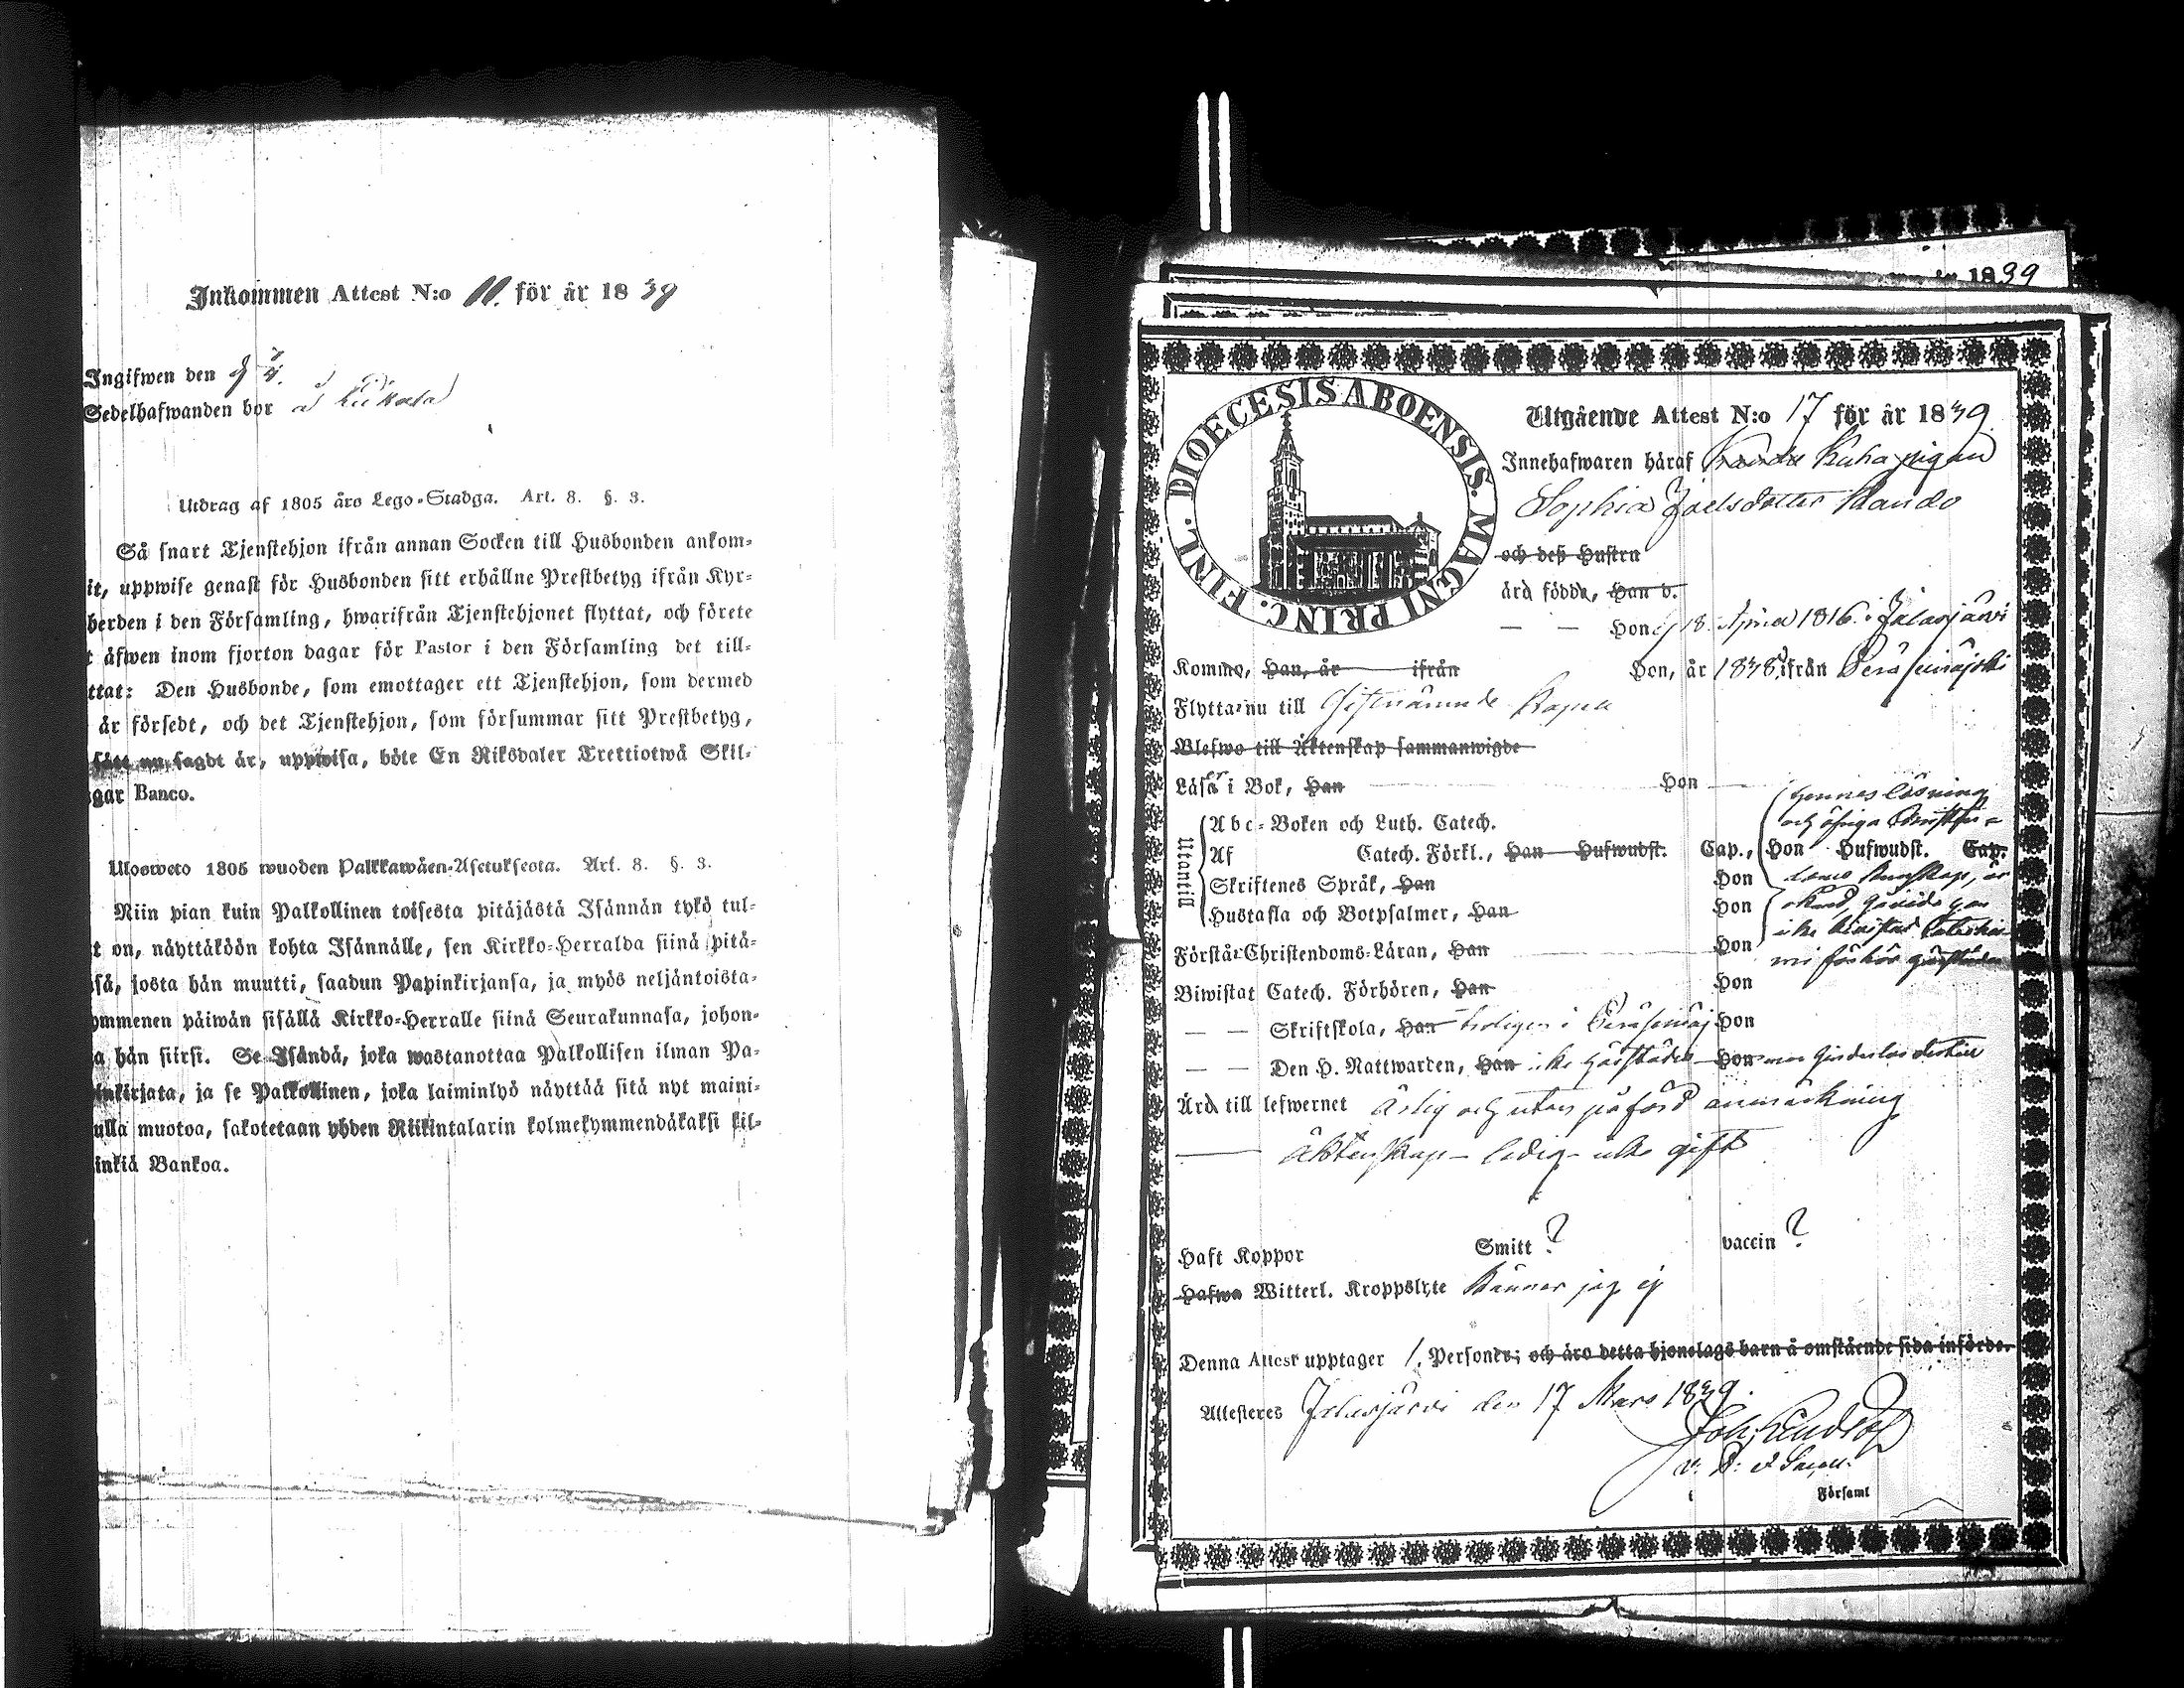 Inkommen Attest N:o 11. för år 1839
Ingifwen den
Sedelhafwanden bor
Utdrag af 1805 års Lego-Stadga. Art. 8. §. 3.
Så snart Tjenstehjon ifrån annan Socken till Husbonden ankom-
it, uppwise genast för Husbonden sitt erhållne Prestbetyg ifrån Kyr-
herden i den Församling, hwarifrån Tjenstehjonet flyttat, och förete
t äfwen inom fjorton dagar för Pastor i den Församling det till-
ttat: Den Husbonde, som emottager ett Tjenstehjon, som dermed
är försedt, och det Tjenstehjon, som försummar sitt Prestbetyg,
sätt nu sagdt är, uppwisa, böte En Riksdaler Trettiotwå Skil-
gar Banco.
Ulosweto 1805 wuoden Palkkawäen-Asetuksesta. Art. 8. §. 3.
Niin pian kuin Palkollinen toisesta pitäjästä Isännän tykö tul-
t on, näyttäköön kohta Isännälle, sen Kirkko-Herralda siinä pitä-
sä, josta hän muutti, saadun Papinkirjansa, ja myös neljäntoista-
ommenen päiwän sisällä Kirkko-Herralle siinä Seurakunnasa, johon-
a hän siirsi. Se Isändä, joka wastanottaa Palkollisen ilman Pa-
inkirjata, ja se Palkollinen, joka laiminlyö näyttää sitä nyt maini-
ulla muotoa, sakotetaan yhden Riikintalarin kolmekymmendäkaksi kil-
inkiä Bankoa.
1839
DIOECESIS ABOENSIS. MAGNI PRINC. FINL.
Utgående Attest N:o 17 för år 1839.
Innehafwaren häraf pigan
Sophia Joelsdotter Rando
och deß Hustru
ärd födda, Han d.
— — Hon d 18 April 1816 i Jalasjärvi
Kommo, Han, år ifrån Hon, år 1838 ifrån Peräseinäjoki
Flytta nu till Sistnämnde Kapell
Blefwo till Äktenskap sammanwigde
Läsa i Bok, Han Hon
hennes läsning
och öfriga Christen-
Utantill
Abc-Boken och Luth. Catech.
Af Catech. Förkl., Han Hufwudst. Cap., Hon Hufwudst. Cap.
Skriftenes Språk, Han Hon doms kunskap, är
Hustafla och Botpsalmer, Han Hon
Förstår Christendoms-Läran, Han Hon
Biwistat Catech. Förhören, Han Hon
— — Skriftskola, Han troligen i Peräseinäj Hon
— — Den H. Nattwarden, Han icke härstädes Hon
Ärd till lefwernet ärlig och utan påförd anmärkning
äktenskap — ledig — icke gift
Haft Koppor Smitt ? vaccin ?
Hafwa Witterl. Kroppslyte känner jag ej
Denna Attest upptager 1. Personer; och äro detta hjonelags barn å omstående sida införde.
Attesteres Jalasjärvi den 17 Mars 1839.
Församl